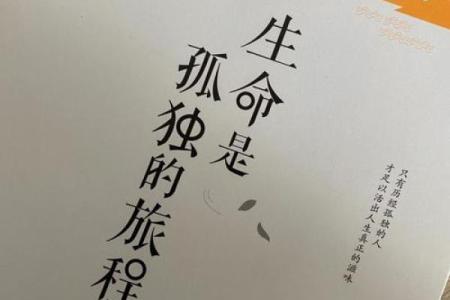 生命是
孤独的旅程
只有历经孤独的人
才足以活出人生真正的滋味